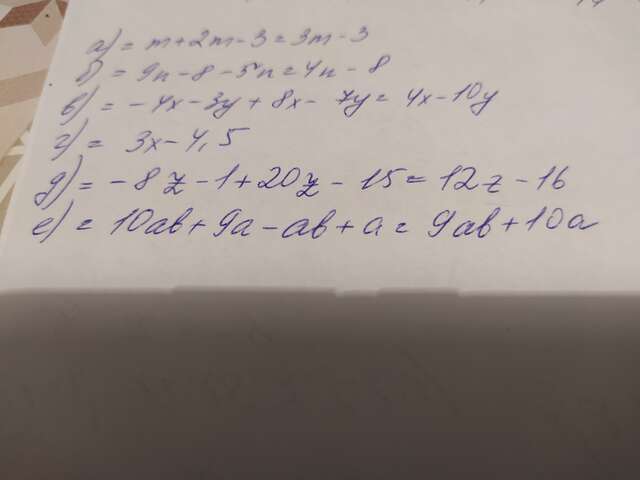 а) = m + 2m - 3 = 3m - 3
б) = 9n - 8 - 5n = 4n - 8
в) = - 4x - 3y + 8x - 7y = 4x - 10y
г) = 3x - 4,5
д) = - 8z - 1 + 20z - 15 = 12z - 16
е) = 10ab + 9a - ab + a = 9ab + 10a